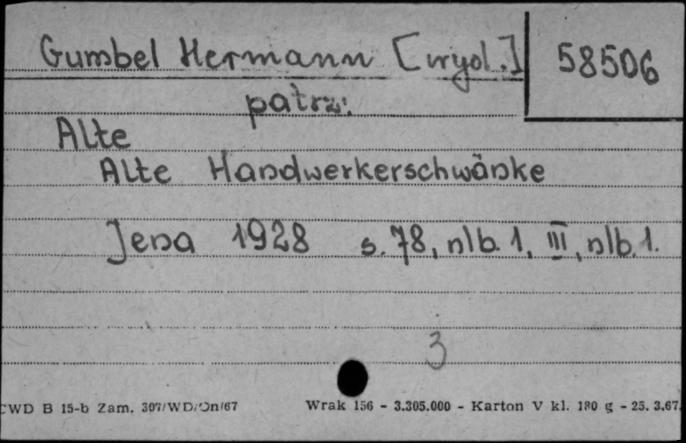 Gumbel Hermann [wyd.]
58506
patrz:
Alte
Alte Handwerkerschwänke
Jena 1928 s. 78, nlb. 1, III, nlb. 1.
3
CWD B 15-b Zam. 307/WD/On/67 Wrak 156 - 3.305.000 - Karton V kl. 180 g - 25. 3.67